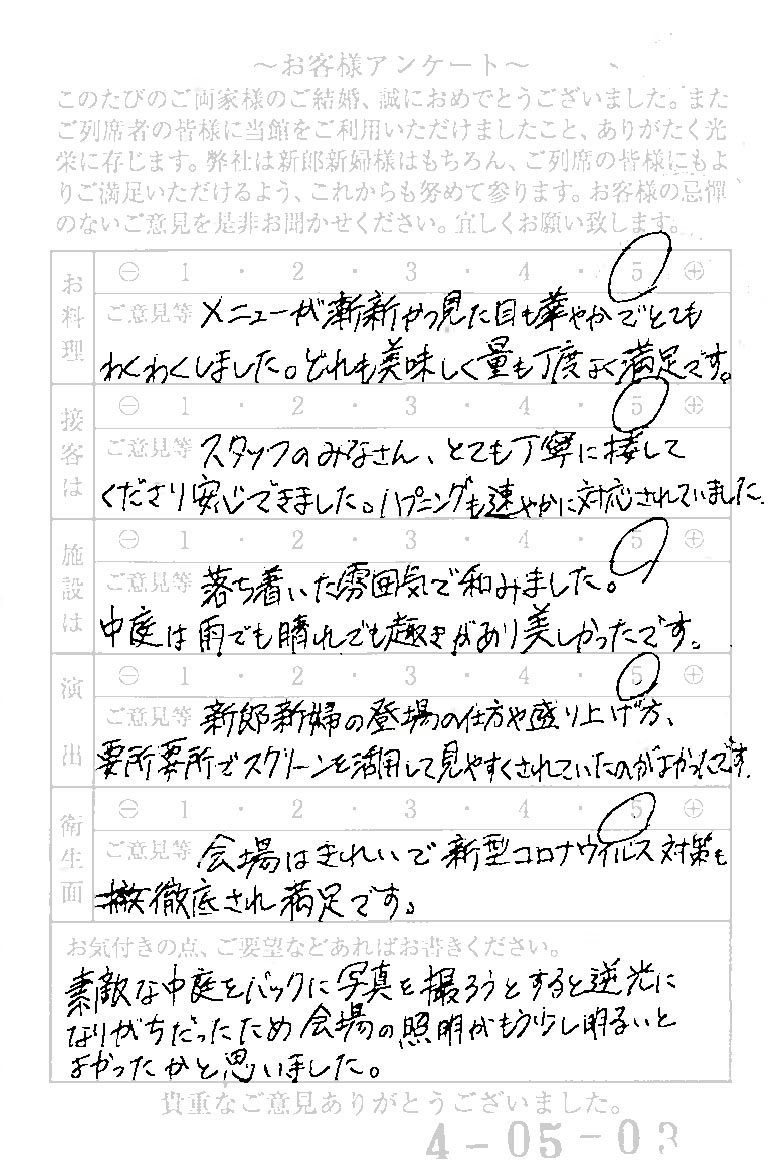 ～お客様アンケート～
このたびのご両家様のご結婚、誠におめでとうございました。また
ご列席者の皆様に当館をご利用いただけましたこと、ありがたく光
栄に存じます。弊社は新郎新婦様はもちろん、ご列席の皆様にもよ
りご満足いただけるよう、これからも努めて参ります。お客様の忌憚
のないご意見を是非お聞かせください。宜しくお願い致します。
お料理
㊀ 1 ・ 2 ・ 3 ・ 4 ・ 5 ㊉
ご意見等 メニューが斬新かつ見た目も華やかでとても
わくわくしました。どれも美味しく量も丁度よく満足です。
接客は
㊀ 1 ・ 2 ・ 3 ・ 4 ・ 5 ㊉
ご意見等 スタッフのみなさん、とても丁寧に接して
くださり安心できました。ハプニングも速やかに対応されていました.
施設は
㊀ 1 ・ 2 ・ 3 ・ 4 ・ 5 ㊉
ご意見等 落ち着いた雰囲気で和みました。
中庭は雨でも晴れでも趣きがあり美しかったです。
演出
㊀ 1 ・ 2 ・ 3 ・ 4 ・ 5 ㊉
ご意見等 新郎新婦の登場の仕方や盛り上げ方、
要所要所でスクリーンを活用して見やすくされていたのがよかったです.
衛生面
㊀ 1 ・ 2 ・ 3 ・ 4 ・ 5 ㊉
ご意見等 会場はきれいで新型コロナウイルス対策も
徹底され満足です。
お気付きの点、ご要望などあればお書きください。
素敵な中庭をバックに写真を撮ろうとすると逆光に
なりがちだったため会場の照明がもう少し明るいと
よかったかと思いました。
貴重なご意見ありがとうございました。
4-05-03